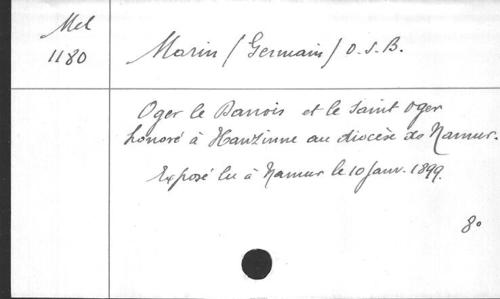 Mel
1180
Morin (Germain) O.S.B.
Oger le Danois et le Saint Oger
honoré à Hanzinne au diocèse de Namur.
Exposé lu à Namur le 10 Janv. 1899.
8°